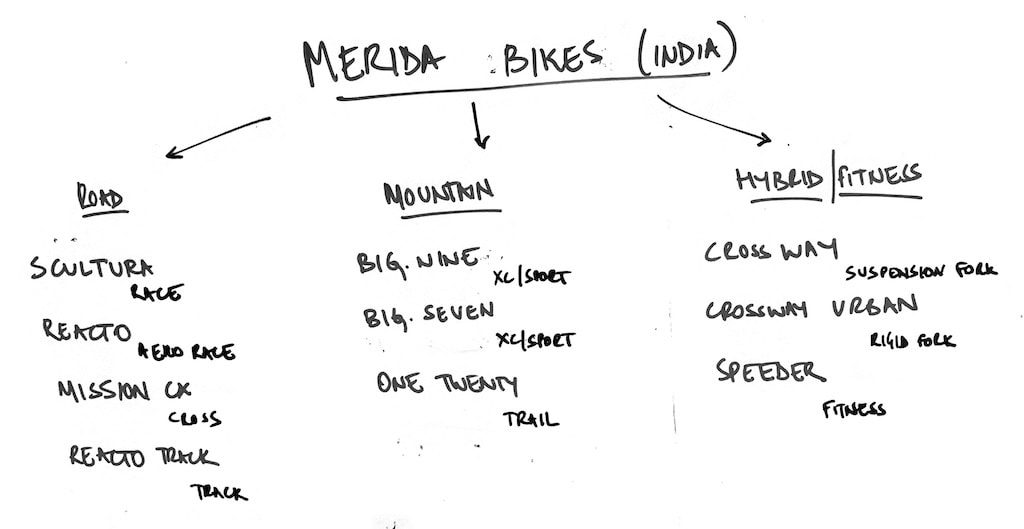 MERIDA BIKES (INDIA)
ROAD
SCULTURA
RACE
REACTO
AERO RACE
MISSION CX
CROSS
REACTO TRACK
TRACK
MOUNTAIN
BIG. NINE
XC/SPORT
BIG. SEVEN
XC/SPORT
ONE TWENTY
TRAIL
HYBRID/FITNESS
CROSSWAY
SUSPENSION FORK
CROSSWAY URBAN
RIGID FORK
SPEEDER
FITNESS